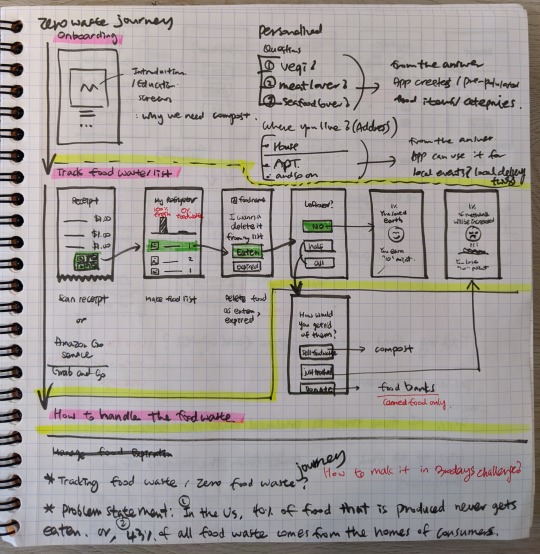 Zero waste journey
Onboarding
Introduction
/Education
screens
: why we need compost.
Personalized
Questions
① vegi?
② meat lover?
③ Seafood lover?
from the answer
App creates / pre-populated
food items / categories.
Where you live? (Address)
- House
- APT.
- and so on
from the answer
App can use it for
local events? local delivery
Track food waste list
Receipt
$1.00
$1.00
$1.00
Scan receipt
or
Amazon Go
service
Grab and Go
My Refrigerator
100%
fresh
0%
food waste
1
2
1
Make food list
food name
I wanna
delete it
from my list
Eaten
Expired
Delete food
as eaten,
expired
Leftover?
NO!
half
all
You saved
Earth
You earn
"10" point
will be increased
You lose
"10" point
How would
you get rid
of them?
→ compost
Donate → food banks
Canned food only.
How to handle the food waste
Manage food Expiration
* Tracking food waste / Zero food waste journey?
How to make it in 3 days challenge?
* Problem statement: ① In the US, 40% of food that is produced never gets
eaten. or, ② 43% of all food waste comes from the homes of consumers.